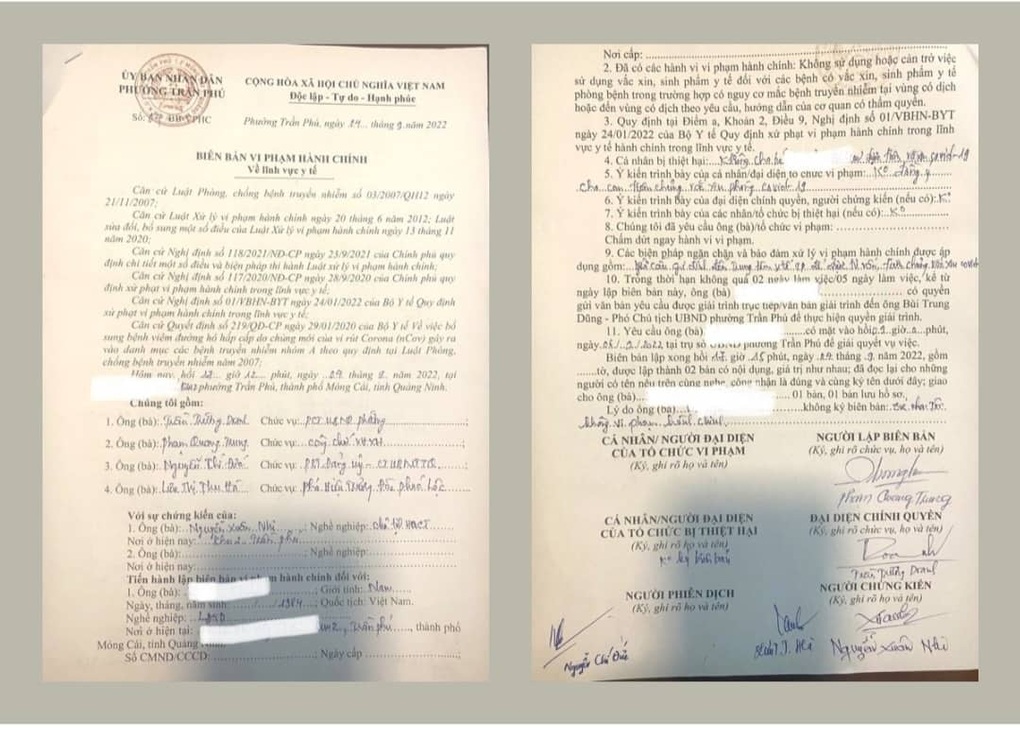 ỦY BAN NHÂN DÂN
PHƯỜNG TRẦN PHÚ
Số: BB-VPHC
CỘNG HÒA XÃ HỘI CHỦ NGHĨA VIỆT NAM
Độc lập - Tự do - Hạnh phúc
Phường Trần Phú, ngày 29... tháng 9 năm 2022
BIÊN BẢN VI PHẠM HÀNH CHÍNH
Về lĩnh vực y tế
Căn cứ Luật Phòng, chống bệnh truyền nhiễm số 03/2007/QH12 ngày
21/11/2007;
Căn cứ Luật Xử lý vi phạm hành chính ngày 20 tháng 6 năm 2012; Luật
sửa đổi, bổ sung một số điều của Luật Xử lý vi phạm hành chính ngày 13 tháng 11
năm 2020;
Căn cứ Nghị định số 118/2021/NĐ-CP ngày 23/9/2021 của Chính phủ quy
định chi tiết một số điều và biện pháp thi hành Luật xử lý vi phạm hành chính;
Căn cứ Nghị định số 117/2020/NĐ-CP ngày 28/9/2020 của Chính phủ quy
định xử phạt vi phạm hành chính trong lĩnh vực y tế;
Căn cứ Nghị định số 01/VBHN-BYT ngày 24/01/2022 của Bộ Y tế Quy định
xử phạt vi phạm hành chính trong lĩnh vực y tế;
Căn cứ Quyết định số 219/QĐ-CP ngày 29/01/2020 của Bộ Y tế Về việc bổ
sung bệnh viêm đường hô hấp cấp do chủng mới của vi rút Corona (nCov) gây ra
vào danh mục các bệnh truyền nhiễm nhóm A theo quy định tại Luật Phòng,
chống bệnh truyền nhiễm năm 2007;
Hôm nay, hồi 12 giờ 12... phút, ngày ...29 tháng 9.. năm 2022, tại
phường Trần Phú, thành phố Móng Cái, tỉnh Quảng Ninh.
Chúng tôi gồm:
1. Ông (bà): Trần Trường Doanh Chức vụ: PCT UBND phường
2. Ông (bà): Phạm Quang Trung Chức vụ: công chức
3. Ông (bà): Nguyễn Thị Chức vụ:
4. Ông (bà): Liêu Thị Thu Hà Chức vụ: Phó Hiệu Trưởng
Với sự chứng kiến của:
1. Ông (bà): Nguyễn Xuân Nhị ; Nghề nghiệp:
Nơi ở hiện nay: Khu 2 - Trần phú
2. Ông (bà): ; Nghề nghiệp:
Nơi ở hiện nay:
Tiến hành lập biên bản vi phạm hành chính đối với:
1. Ông (bà): ; Giới tính: Nam
Ngày, tháng, năm sinh: / /1984; Quốc tịch: Việt Nam.
Nghề nghiệp: LĐTD
Nơi ở hiện tại: Trần phú, thành phố
Móng Cái, tỉnh Quảng
Số CMND/CCCD: ; Ngày cấp
Nơi cấp:
2. Đã có các hành vi vi phạm hành chính: Không sử dụng hoặc cản trở việc
sử dụng vắc xin, sinh phẩm y tế đối với các bệnh có vắc xin, sinh phẩm y tế
phòng bệnh trong trường hợp có nguy cơ mắc bệnh truyền nhiễm tại vùng có dịch
hoặc đến vùng có dịch theo yêu cầu, hướng dẫn của cơ quan có thẩm quyền.
3. Quy định tại Điểm a, Khoản 2, Điều 9, Nghị định số 01/VBHN-BYT
ngày 24/01/2022 của Bộ Y tế Quy định xử phạt vi phạm hành chính trong lĩnh
vực y tế hành chính trong lĩnh vực y tế.
4. Cá nhân bị thiệt hại: Không cho bé covid-19
5. Ý kiến trình bày của cá nhân/đại diện tổ chức vi phạm: Ko đồng ý
cho con tiêm chủng covid 19
6. Ý kiến trình bày của đại diện chính quyền, người chứng kiến (nếu có): K°
7. Ý kiến trình bày của các nhân/tổ chức bị thiệt hại (nếu có): K°
8. Chúng tôi đã yêu cầu ông (bà)/tổ chức vi phạm:
Chấm dứt ngay hành vi vi phạm.
9. Các biện pháp ngăn chặn và bảo đảm xử lý vi phạm hành chính được áp
dụng gồm: Yêu cầu gia đình đến Trung tâm y tế
10. Trong thời hạn không quá 02 ngày làm việc/05 ngày làm việc, kể từ
ngày lập biên bản này, ông (bà) có quyền
gửi văn bản yêu cầu được giải trình trực tiếp/văn bản giải trình đến ông Bùi Trung
Dũng - Phó Chủ tịch UBND phường Trần Phú để thực hiện quyền giải trình.
11. Yêu cầu ông (bà) có mặt vào hồi giờ phút,
ngày /2022 tại trụ sở UBND phường Trần Phú để giải quyết vụ việc.
Biên bản lập xong hồi 12 giờ 45 phút, ngày 29. tháng .9. năm 2022, gồm
tờ, được lập thành 02 bản có nội dung, giá trị như nhau; đã đọc lại cho những
người có tên nêu trên cùng nghe, công nhận là đúng và cùng ký tên dưới đây; giao
cho ông (bà) 01 bản, 01 bản lưu hồ sơ.
Lý do ông (bà) không ký biên bản:
không vi phạm hành chính
CÁ NHÂN/ NGƯỜI ĐẠI DIỆN
CỦA TỔ CHỨC VI PHẠM
(Ký, ghi rõ họ và tên)
NGƯỜI LẬP BIÊN BẢN
(Ký, ghi rõ chức vụ, họ và tên)
Phạm Quang Trung
CÁ NHÂN/NGƯỜI ĐẠI DIỆN
CỦA TỔ CHỨC BỊ THIỆT HẠI
(Ký, ghi rõ họ và tên)
Ko ký biên bản
ĐẠI DIỆN CHÍNH QUYỀN
(Ký, ghi rõ chức vụ, họ và tên)
Trần Trường Doanh
NGƯỜI PHIÊN DỊCH
(Ký, ghi rõ họ và tên)
NGƯỜI CHỨNG KIẾN
(Ký, ghi rõ họ và tên)
Nguyễn Xuân Nhị